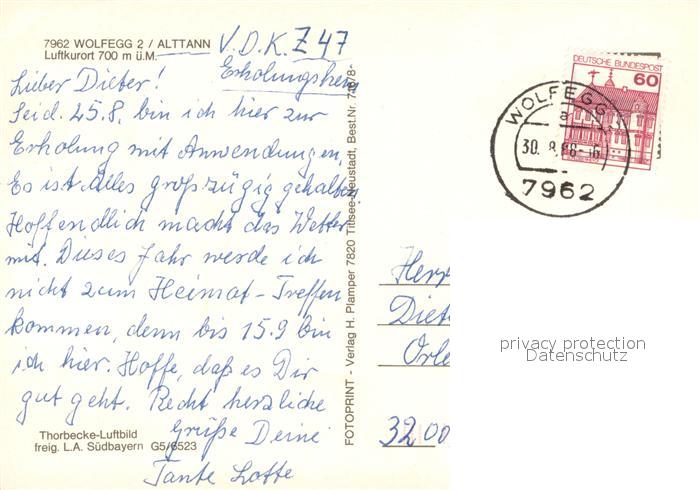 7962 WOLFEGG 2 / ALTTANN
Luftkurort 700 m ü.M.
V.D.K. Z 47
Erholungsheim
Lieber Dieter!
Seid 25.8. bin ich hier zur
Erholung mit Anwendungen,
Es ist Alles großzügig gehalten
Hoffendlich macht das Wetter
mit. Dieses Jahr werde ich
nicht zum Heimat-Treffen
kommen, denn bis 15.9 bin
ich hier. Hoffe, daß es Dir
gut geht. Recht herzliche
Grüße Deine
Tante Lotte
Thorbecke-Luftbild
freig. L.A. Südbayern G5/6523
FOTOPRINT - Verlag H. Plamper 7820 Titisee-Neustadt, Best.Nr.
DEUTSCHE BUNDESPOST
60
WOLFEGG
a
30. 8. 86-16
7962
Herr
Diet
Orle
3200
privacy protection
Datenschutz